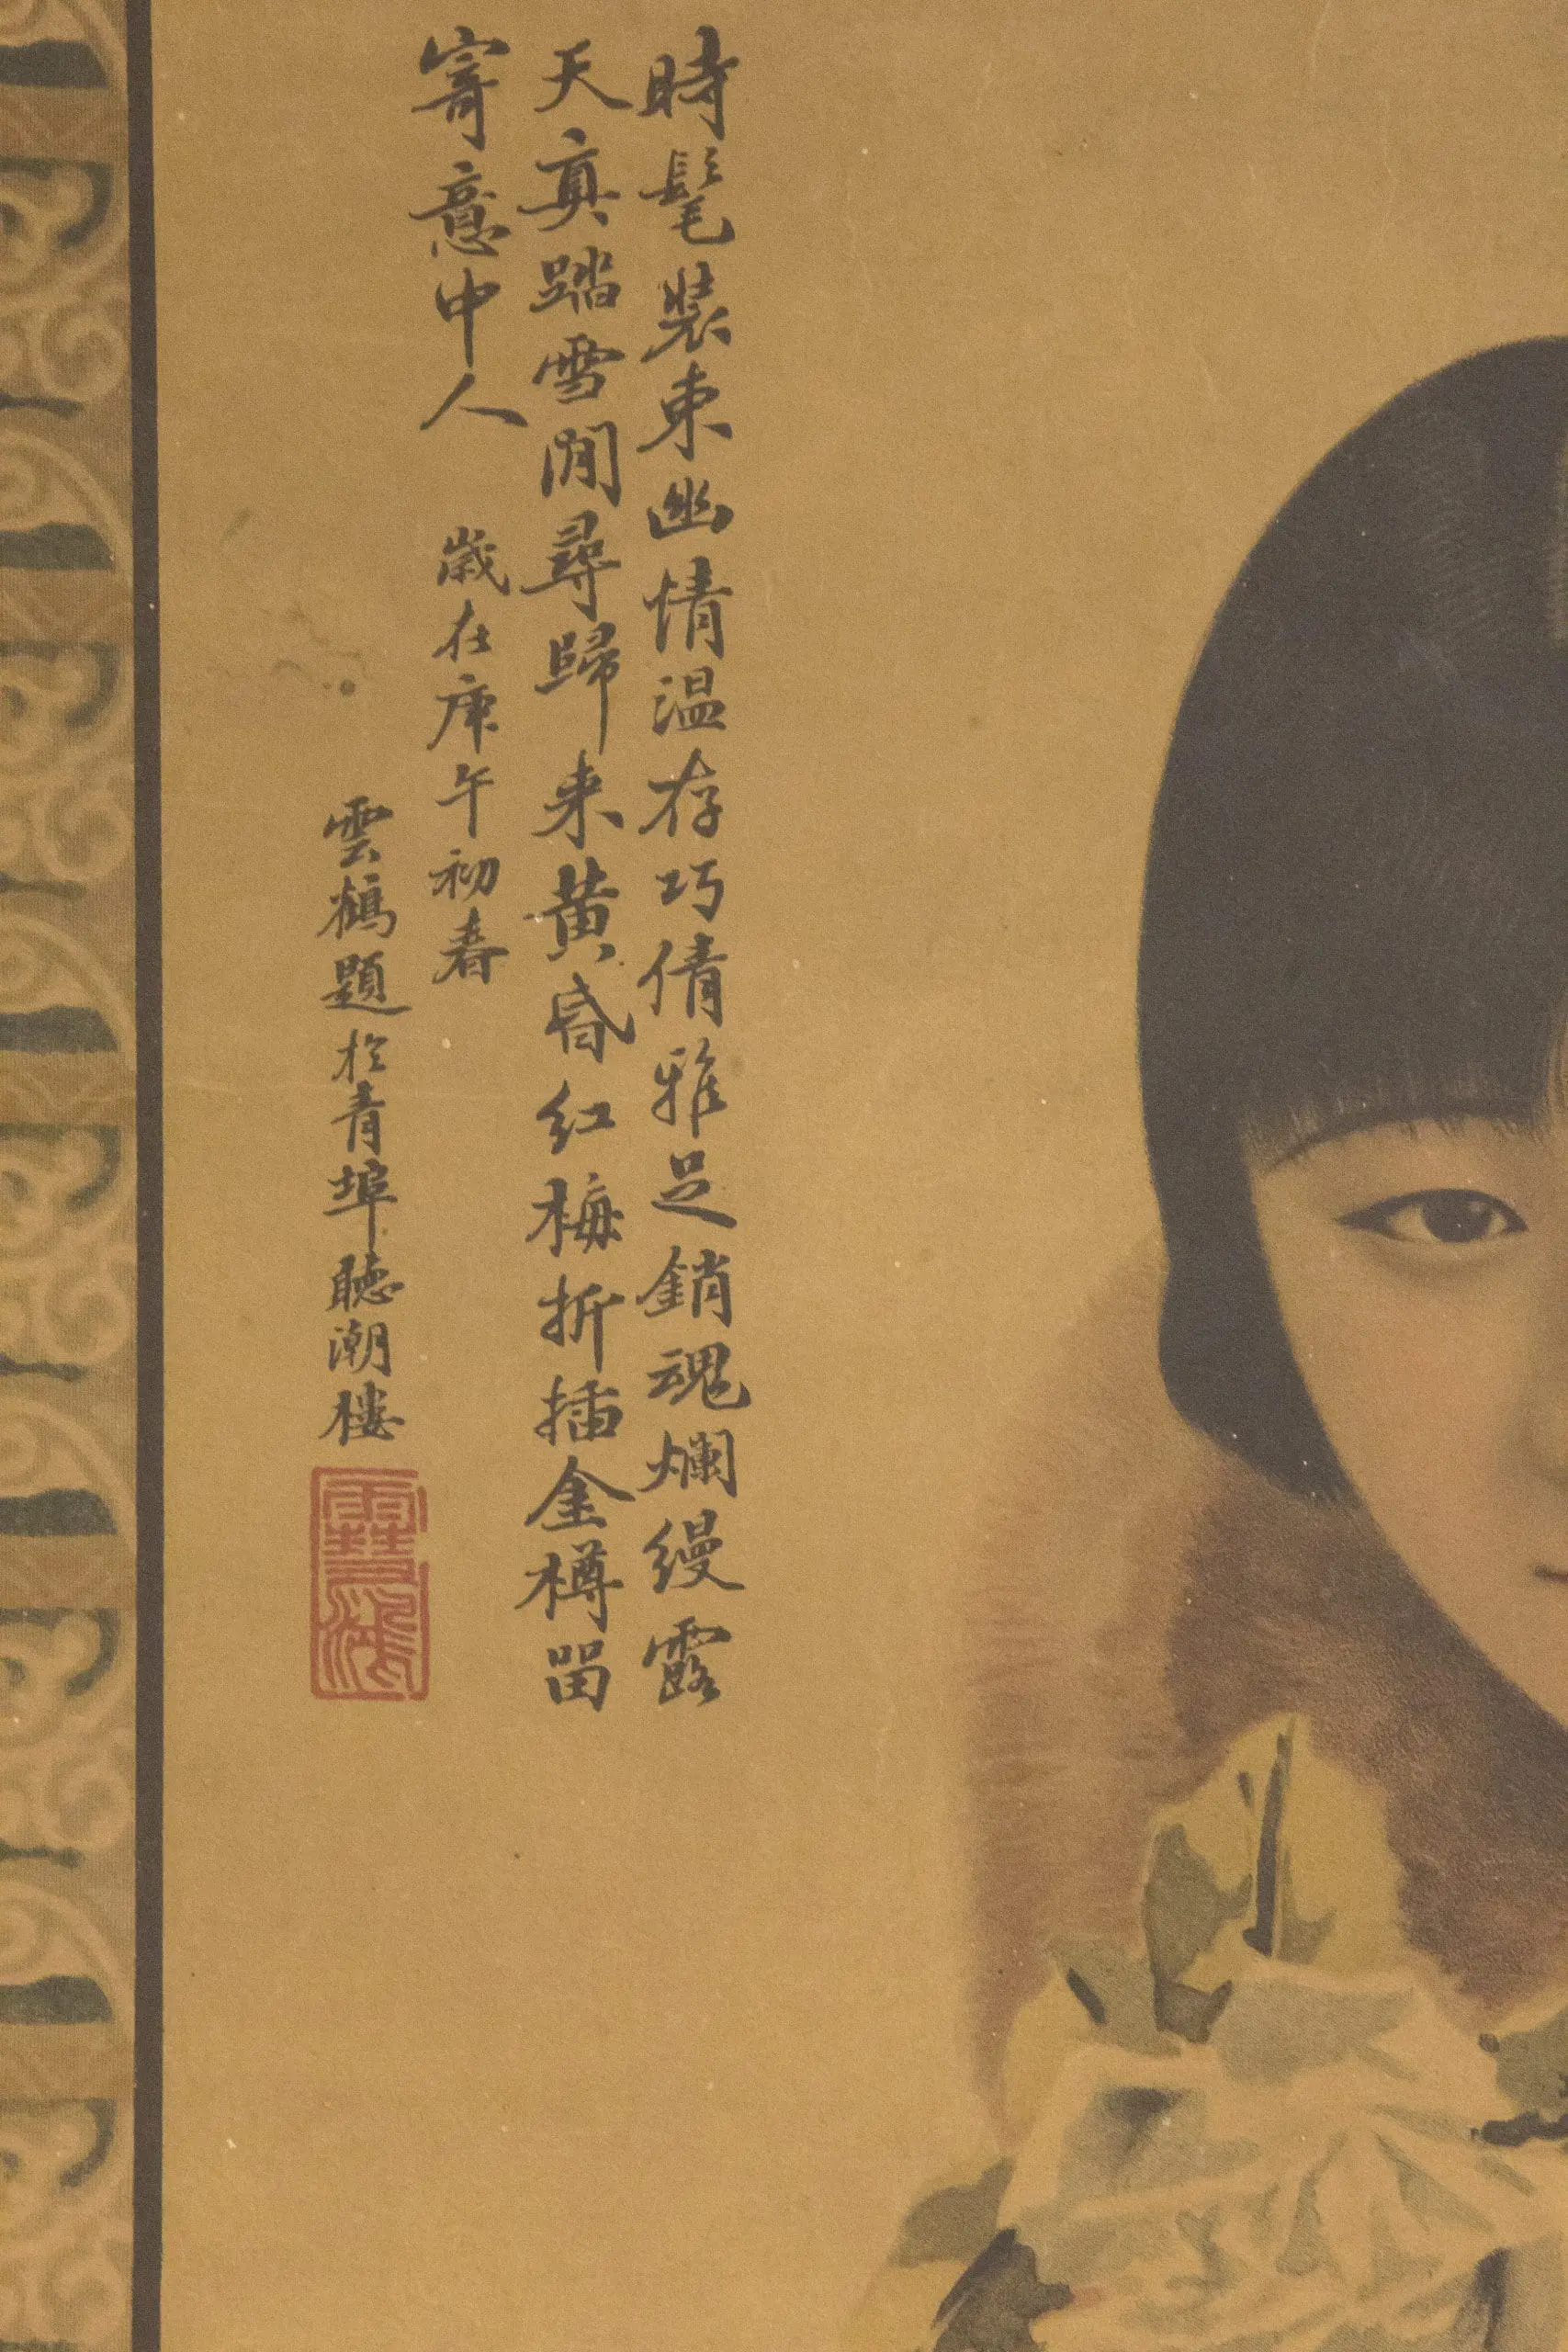 時髦裝束幽情温存巧倩雅足銷魂爛縵露
天真踏雪閒尋歸来黃昏红梅折插金樽留
寄意中人 歲在庚午初春
雲鶴題於青埠聽潮樓